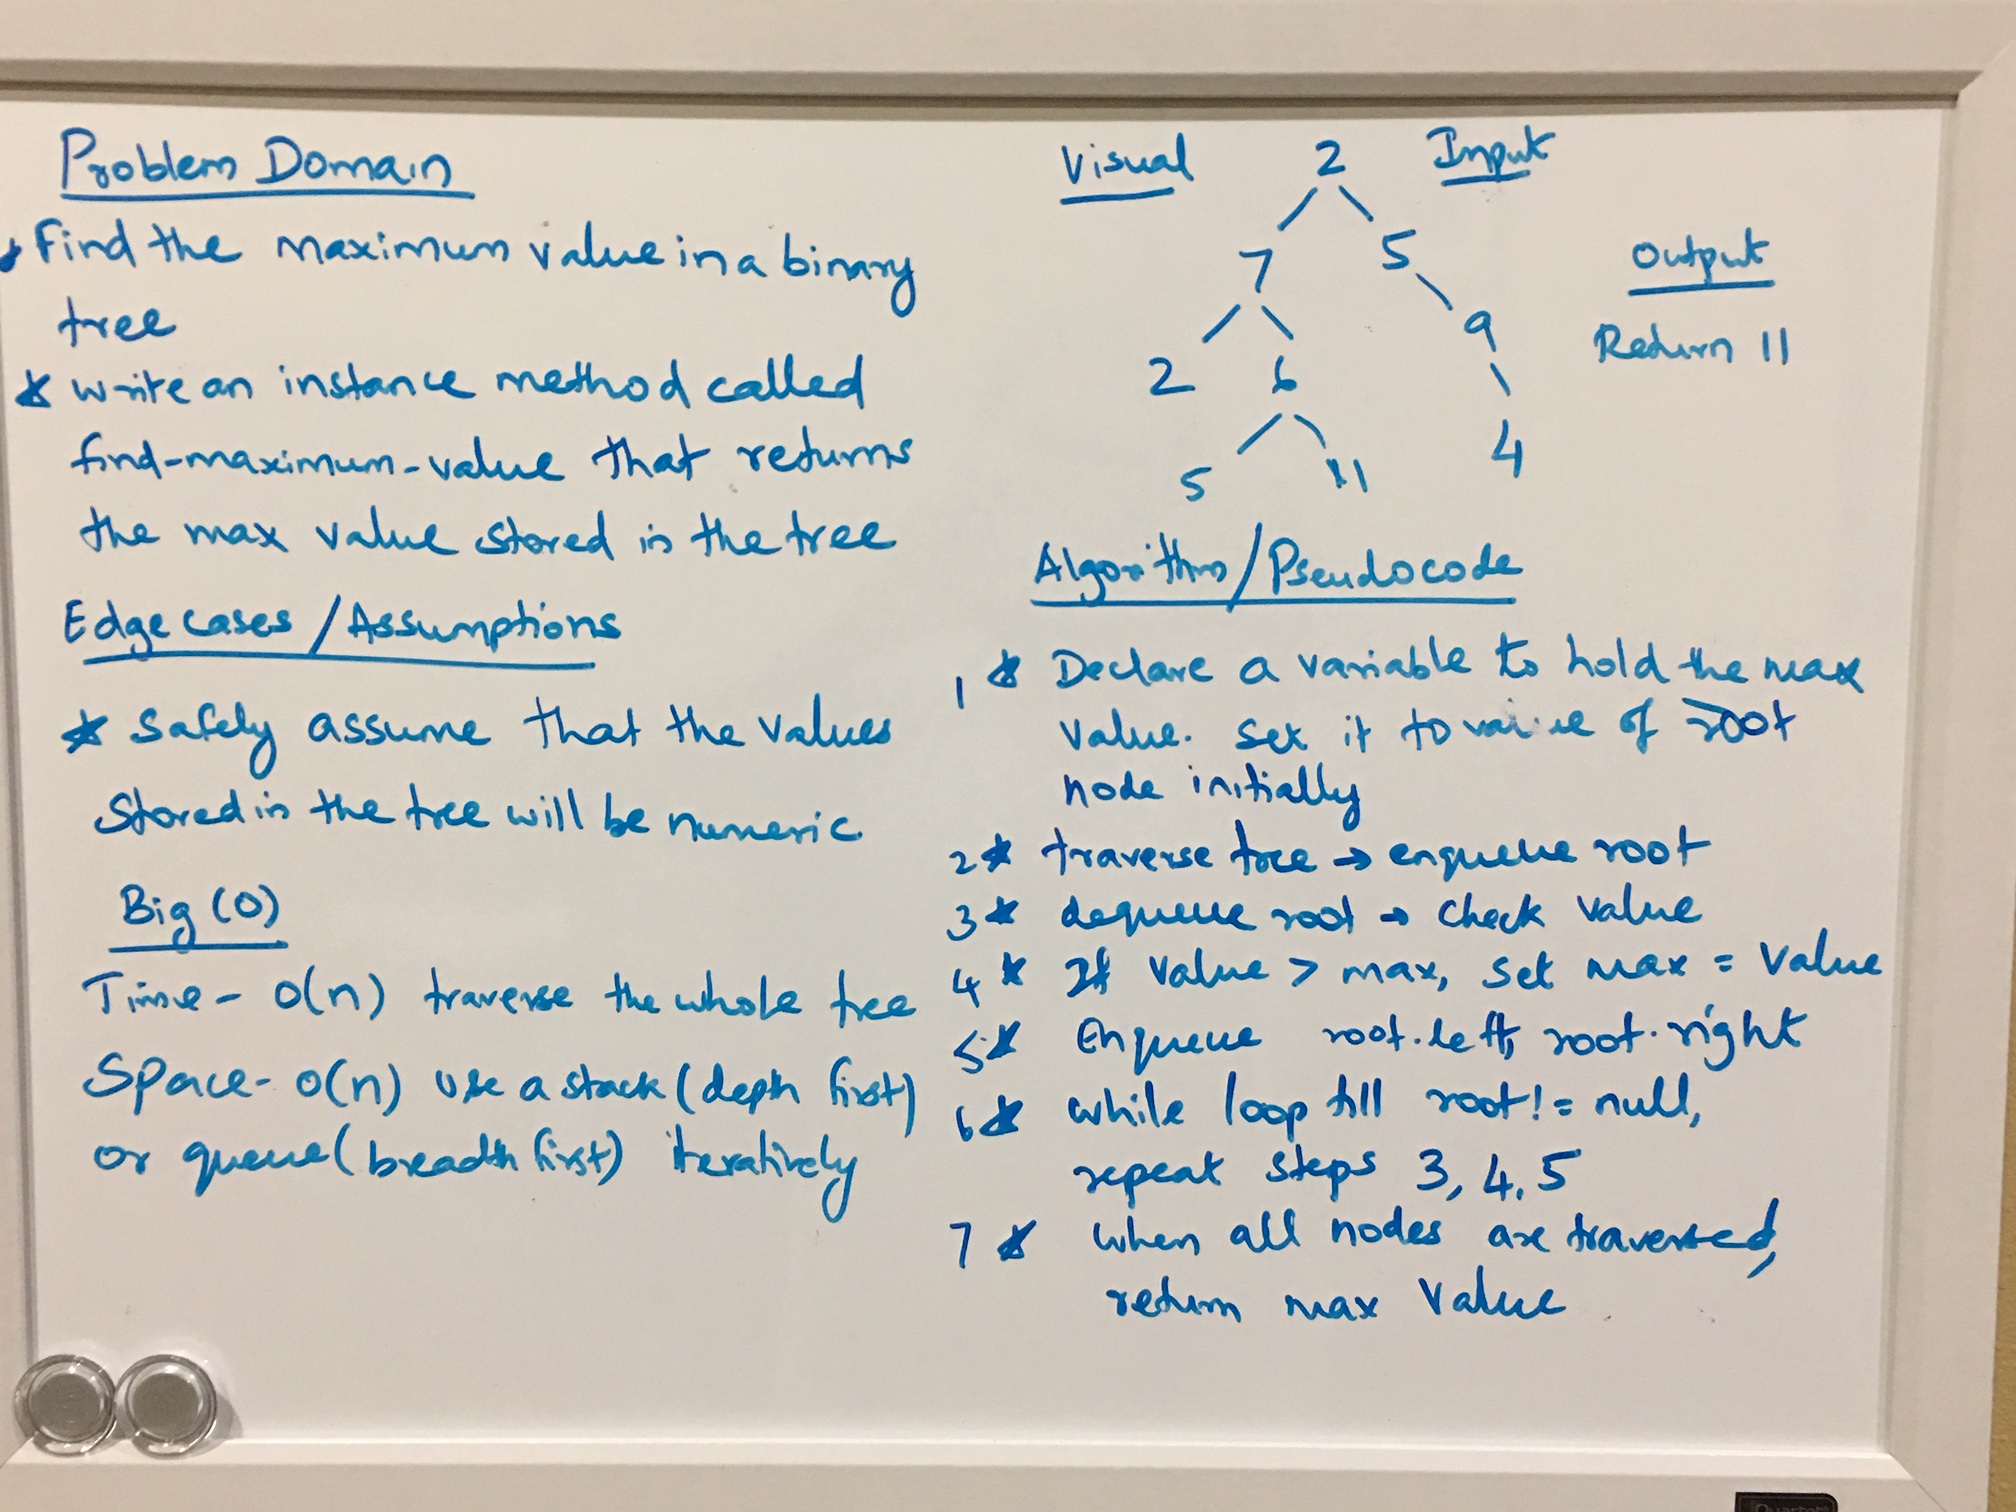 Problem Domain
* Find the maximum value in a binary
tree
* write an instance method called
find-maximum-value that returns
the max value stored in the tree
Edge cases / Assumptions
* Safely assume that the values
stored in the tree will be numeric
Big (O)
Time - O(n) traverse the whole tree
Space - O(n) use a stack (depth first)
or queue (breadth first) iteratively
Visual
Input
2
7 5
9
2 6
4
5 11
Output
Return 11
Algorithm / Pseudocode
1 * Declare a variable to hold the max
value. Set it to value of root
node initially
2 * traverse tree → enqueue root
3 * dequeue root → check value
4 * If value > max, set max = value
5 * Enqueue root.left, root.right
6 * while loop till root != null,
repeat steps 3, 4, 5
7 * when all nodes are traversed,
return max value